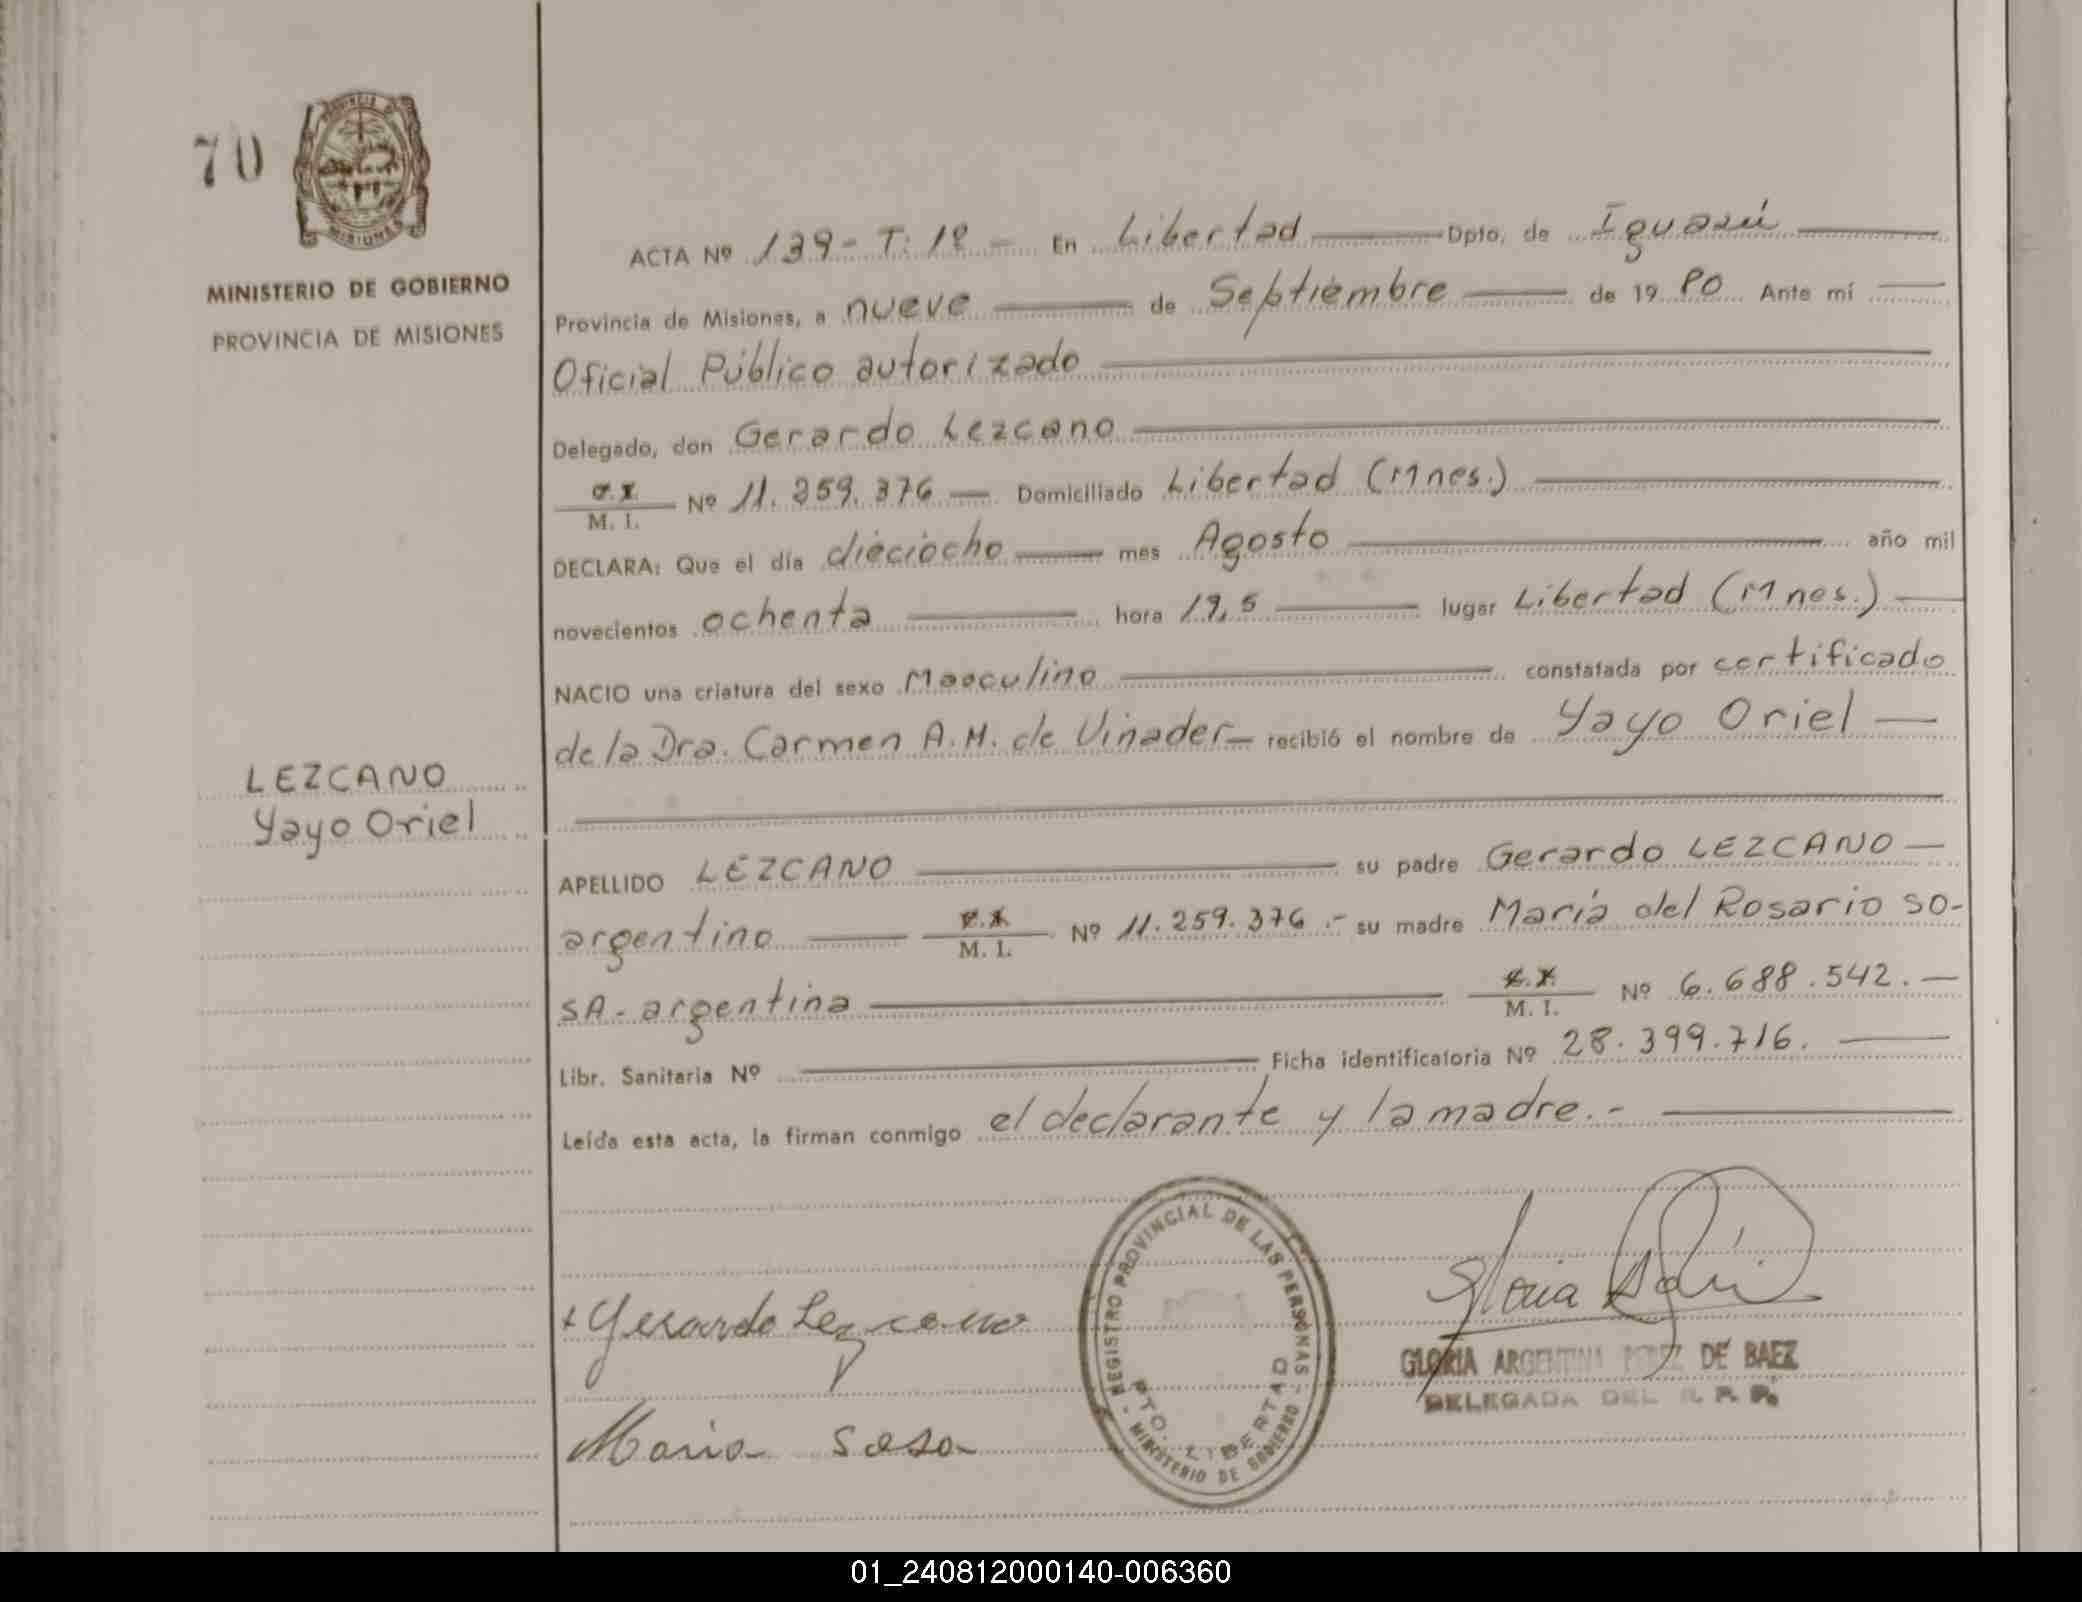 70
PROVINCIA DE
MISIONES
MINISTERIO DE GOBIERNO
PROVINCIA DE MISIONES
ACTA Nº 139- T: 1º - En Libertad Dpto. de Iguazú
Provincia de Misiones, a nueve de Septiembre de 19 80 Ante mí
Oficial Público autorizado
Delegado, don Gerardo Lezcano
M. I. Nº 11.259.376 Domiciliado Libertad (Mnes.)
DECLARA: Que el día dieciocho mes Agosto año mil
novecientos ochenta hora 19,5 lugar Libertad (Mnes.)
NACIO una criatura del sexo Masculino constatada por certificado
de la Dra. Carmen A.M. de Vinader recibió el nombre de Yayo Oriel
LEZCANO
Yayo Oriel
APELLIDO LEZCANO su padre Gerardo LEZCANO
argentino M. I. Nº 11.259.376.- su madre María del Rosario SO-
SA- argentina M. I. Nº 6.688.542.
Libr. Sanitaria Nº Ficha identificatoria Nº 28.399.716.
Leída esta acta, la firman conmigo el declarante y la madre.-
+ Gerardo Lezcano
Maria Sosa
REGISTRO PROVINCIAL DE LAS PERSONAS - MINISTERIO DE GOBIERNO -
PTO. LIBERTAD
GLORIA ARGENTINA PEREZ DE BAEZ
DELEGADA DEL R. P. P.
01_240812000140-006360